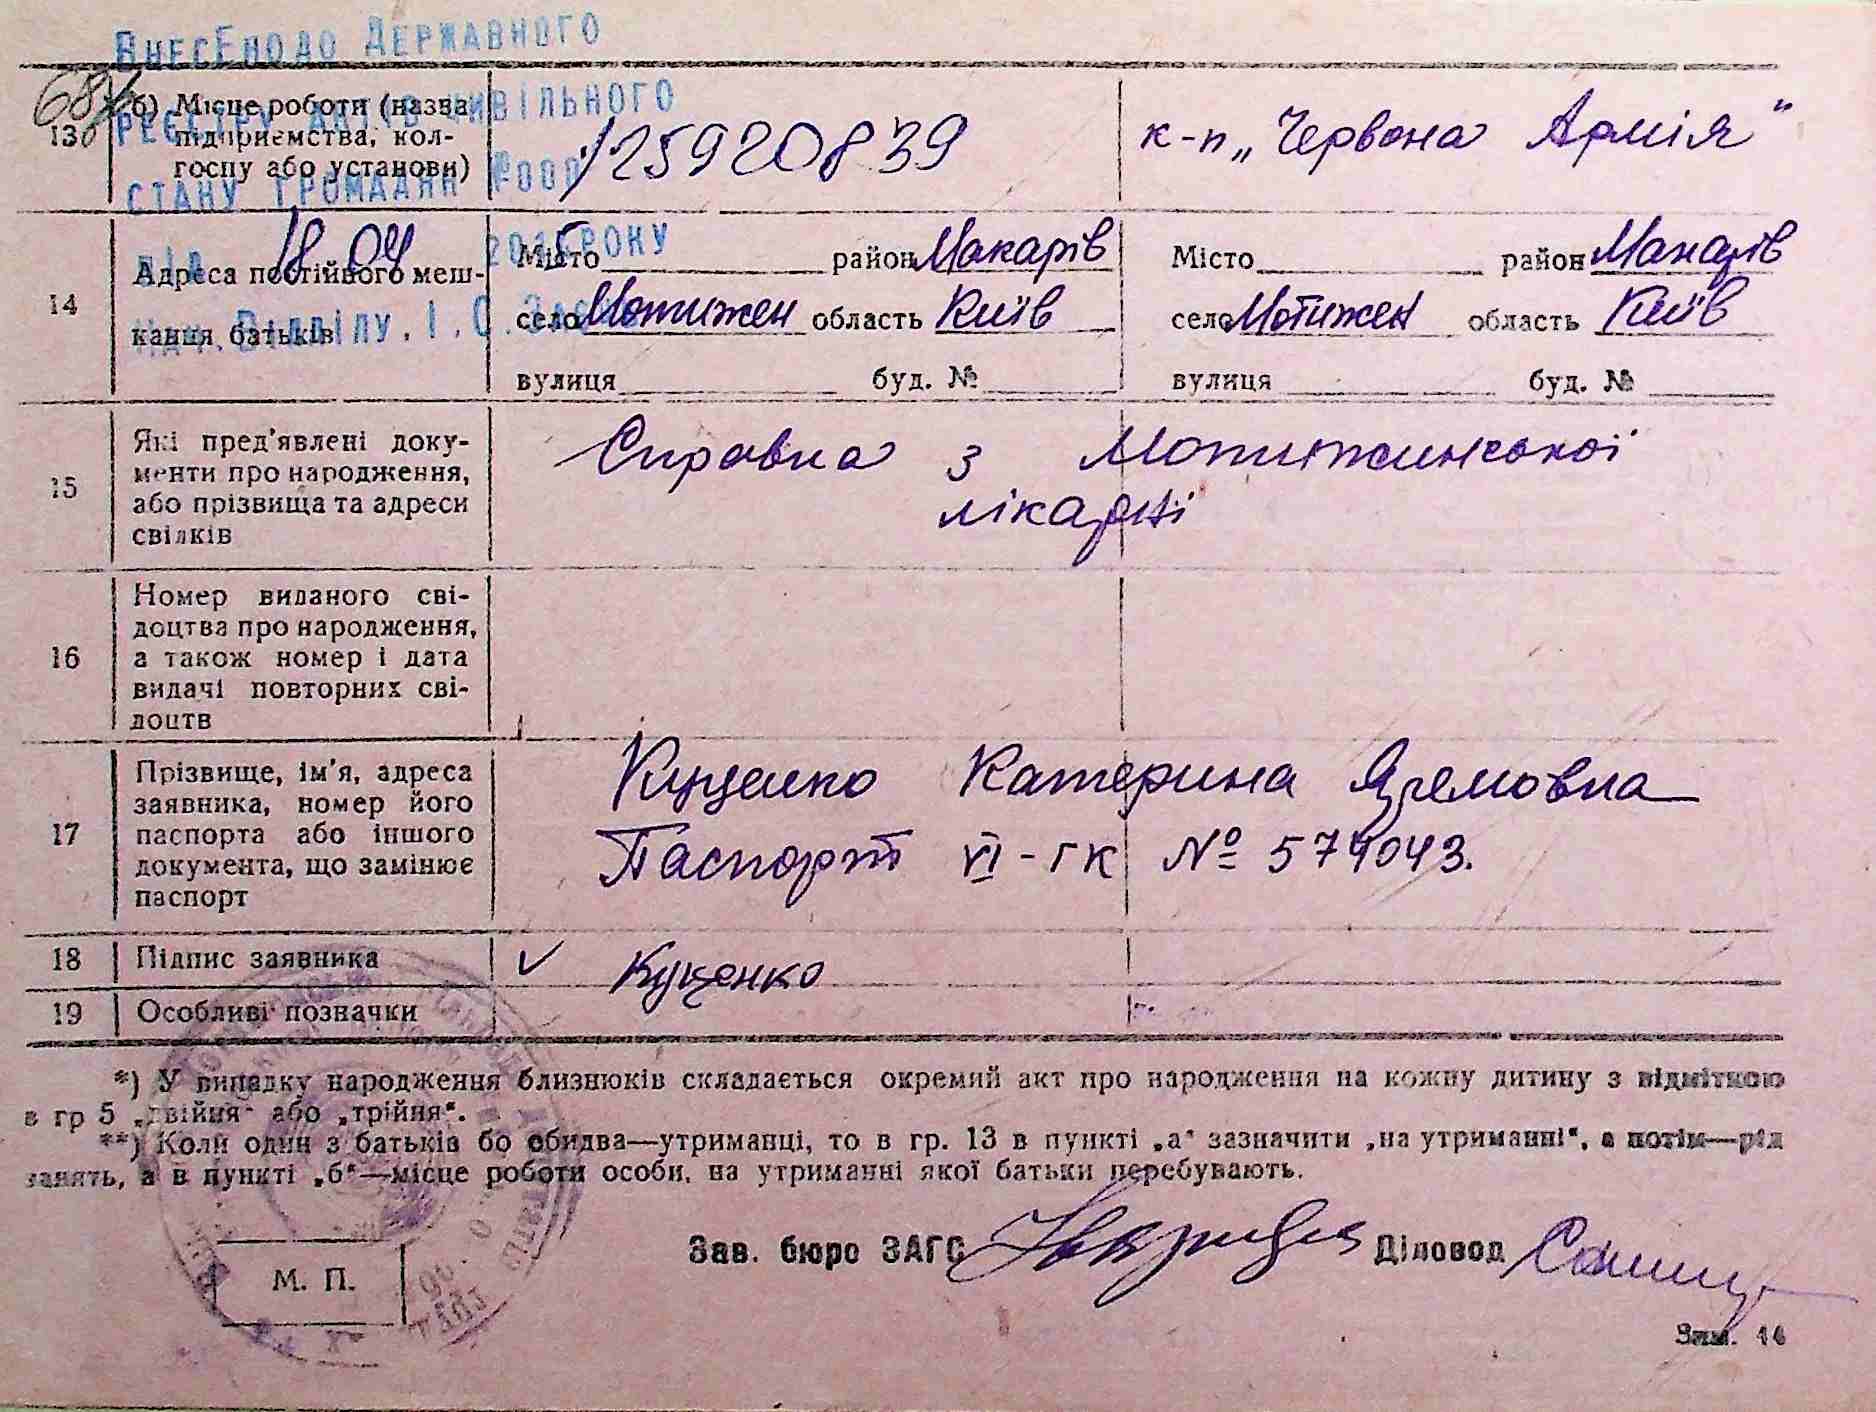 Внесено до Державного
реєстру актів цивільного
стану громадян №000
125920839
від 18.04 2015 року
Нач. Відділу. І.О.
13 б) Місце роботи (назва підприємства, колгоспу або установи)
к-п „Червона Армія"
14 Адреса постійного мешкання батьків
Місто район Макарів
село Мотижен область Київ
вулиця буд. №
Місто район Макарів
село Мотижен область Київ
вулиця буд. №
15 Які пред'явлені документи про народження, або прізвища та адреси свідків
Справка з Мотижинської
лікарні
16 Номер виданого свідоцтва про народження, а також номер і дата видачі повторних свідоцтв
17 Прізвище, ім'я, адреса заявника, номер його паспорта або іншого документа, що замінює паспорт
Куценко Катерина Яремовна
Паспорт VI-ГК № 574043.
18 Підпис заявника
Куценко
19 Особливі позначки
*) У випадку народження близнюків складається окремий акт про народження на кожну дитину з відміткою
в гр 5 „двійня" або „трійня".
**) Коли один з батьків бо обидва—утриманці, то в гр. 13 в пункті „а" зазначити „на утриманні", а потім—рід
занять, а в пункті „б"—місце роботи особи, на утриманні якої батьки перебувають.
Зав. бюро ЗАГС Діловод
М. П.
Зам. 14